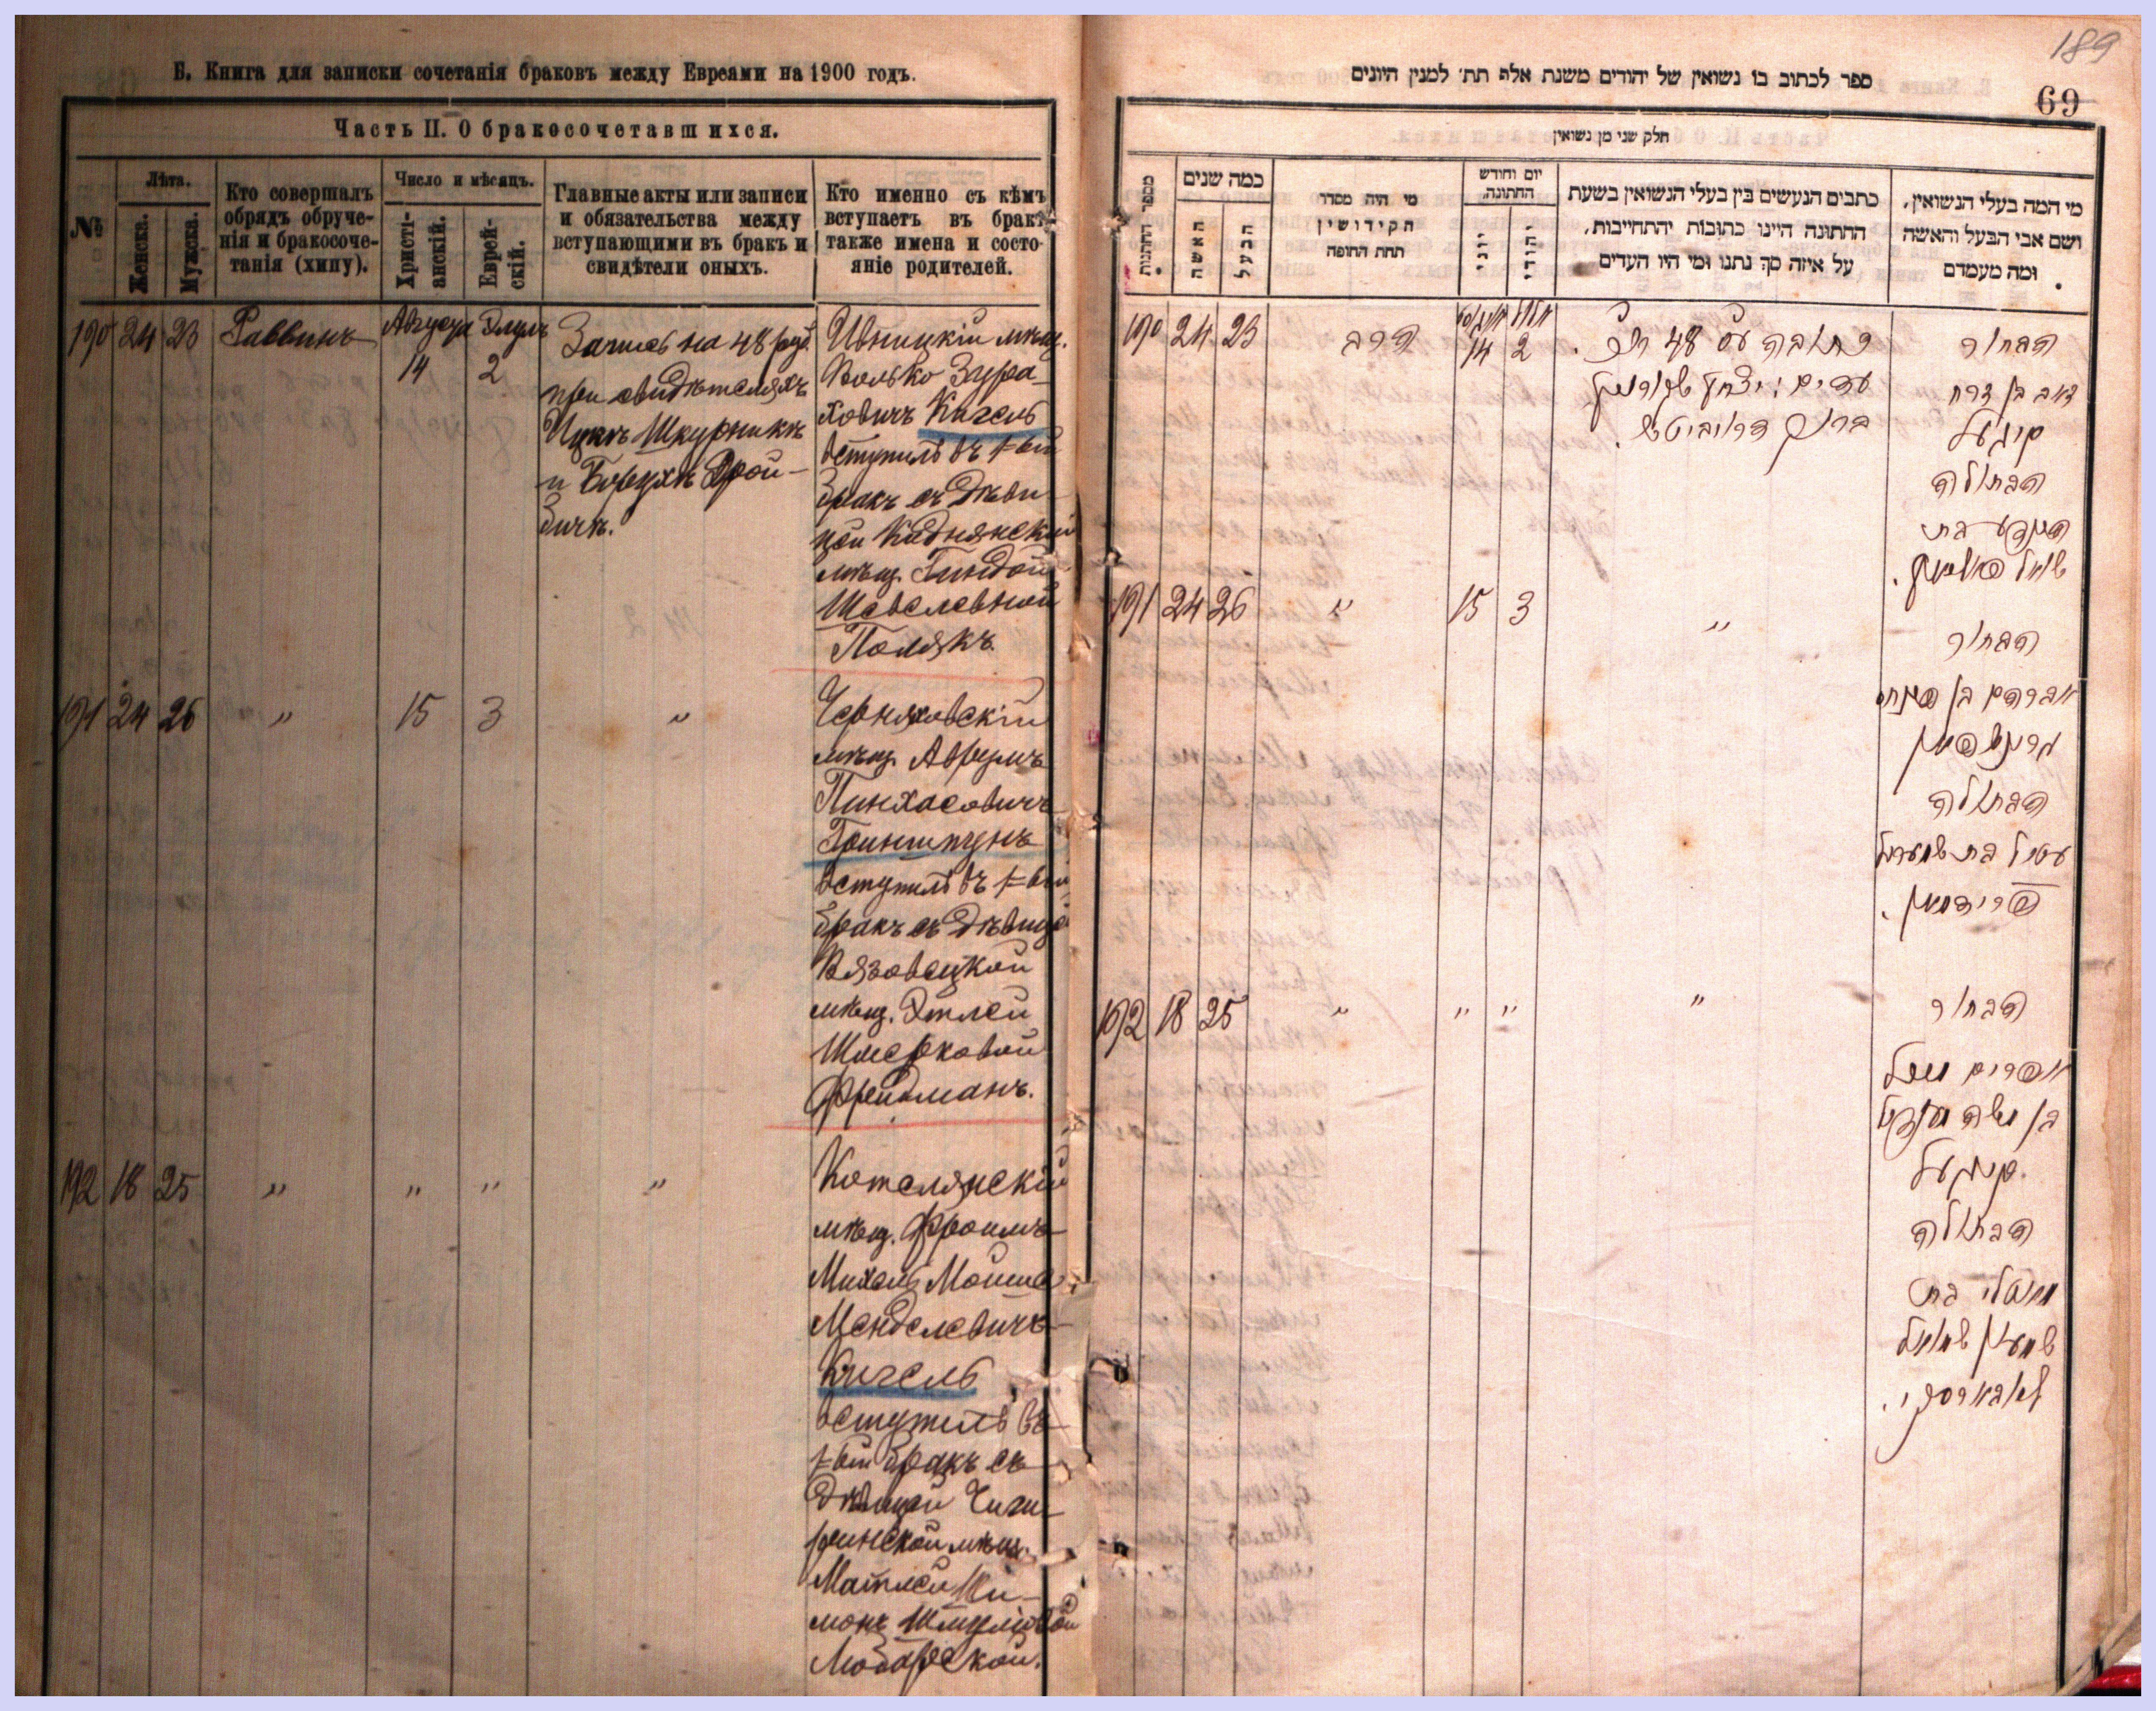 Б. Книга для записки сочетанія браковъ между Евреями на 1900 годъ.
Часть II. О бракосочетавшихся.
№
Лѣта.
Женска.
Мужска.
Кто совершалъ
обрядъ обруче-
нія и бракосоче-
танія (хипу).
Число и мѣсяцъ.
Христі-
анскій.
Еврей-
скій.
Главные акты или записи
и обязательства между
вступающими въ бракъ и
свидѣтели оныхъ.
Кто именно съ кѣмъ
вступаетъ въ бракъ
также имена и состо-
яніе родителей.
190 24 23 Раввинъ
Августа 14
Элулъ 2
Запись на 48 руб.
при свидѣтеляхъ
Ицкъ Шкурникъ
и Борухъ Дрой-
бичъ.
Ивницкій мѣщ.
Волько Зура-
ховичъ Кигель
вступилъ въ 1-ый
бракъ съ дѣви-
цой Кадлянской
мѣщ. Гиндой
Шевелевной
Полякъ.
191 24 26 " 15 3 "
Черняховскій
мѣщ. Аврумъ
Пинхасовичъ
Гринштунъ
вступилъ въ 1-ый
бракъ съ дѣвицей
Вязовецкой
мѣщ. Этлей
Шмерковой
Фрейдманъ.
192 18 25 " " " "
Котелянскій
мѣщ. Фроимъ
Михель Мойше
Менделевичъ
Кигель
вступилъ въ
1-ый бракъ съ
дѣвицей Чиги-
ринской мѣщ.
Матлей Ши-
монъ Шмулевой
189
ספר לכתוב בו נשואין של יהודים משנת אלף תת׳ למנין היונים
69
חלק שני מן נשואין
מספר החתונות
כמה שנים
האשה
הבעל
מי היה מסדר
הקידושין
תחת החופה
יום וחודש
החתונה.
יוני
יהודי
כתבים הנעשים בין בעלי הנשואין בשעת
החתונה היינו כתובות יהתחייבות,
על איזה סך נתנו ומי היו העדים
מי המה בעלי הנשואין,
ושם אבי הבעל והאשה
ומה מעמדם
190 24 23 הרב
אויגוסט 14
אלול 2
כתובה עס 48 רו״כ.
עדים: יצחק שקורניק
ברוך דרוביטש.
הבחור
זאב בן זרח
קיגעל
הבתולה
הינדע בת
שאול פאליאק.
191 24 26 " 15 3 "
הבחור
אברהם בן פינחס
גרינשפאן
הבתולה
עטיל בת שמעריל
פרידמאן.
192 18 25 " " " "
הבחור
אפרים מיכל
בן משה מענדיל
קיגעל.
הבתולה
מאטלי בת
שמעון שמואל